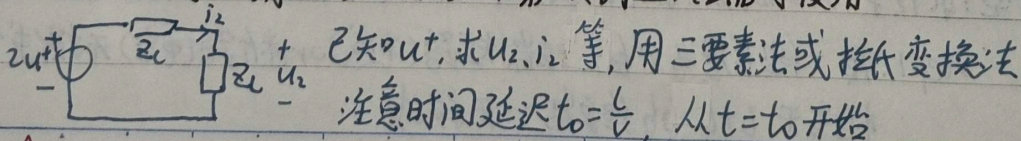 2u⁺ + − Z_c i₂ Z_L + u₂ −
已知u⁺,求u₂、i₂等,用三要素法或拉氏变换法
注意时间延迟t₀=l/v,从t=t₀开始